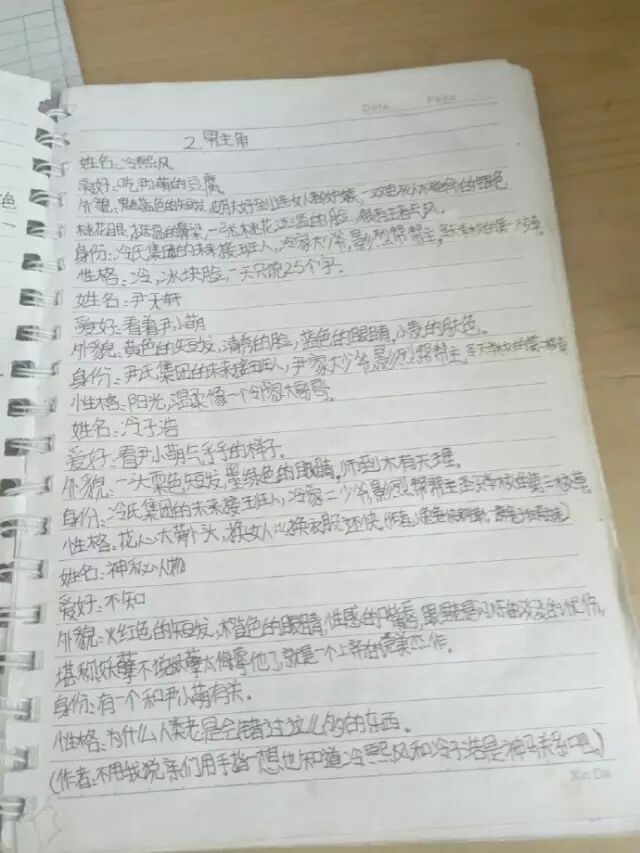 Date Page
2.男主角
姓名:冷熙风
爱好:吃尹小萌的豆腐
外貌:黑蓝色的短发,皮肤好到连女人都妒嫉,一双
桃花眼,一张桃花泛滥的脸,很有王者气风。
身份:冷氏集团的未来接班人,冷家大少爷,影烈帮帮主,
性格:冷,冰块脸,一天只说25个字。
姓名:尹天轩
爱好:看着尹小萌
外貌:黄色的短发,清秀的脸,蓝色的眼睛,小麦的肤色。
身份:尹氏集团的未来接班人,尹家大少爷,影烈帮帮主,
性格:阳光,温柔像一个邻家大哥哥。
姓名:冷子浩
爱好:看尹小萌气乎乎的样子。
外貌:一头栗色短发,墨绿色的眼睛,帅到木有天理。
身份:冷氏集团的未来接班人,冷家二少爷,影烈帮帮主,圣
性格:花心大萝卜头,换女人比换衣服还快,
姓名:神秘人物
爱好:不知
外貌:火红色的短发,橙色的眼睛,性感的嘴唇,
堪称妖孽,不说妖孽太侮辱他了,就是一个上帝的完美杰作。
身份:有一个和尹小萌有关。
性格:为什么人类老是会错过这儿的东西。
(作者:不用我说亲们用手指想也知道冷熙风和冷子浩是神马关系吧)
Xin Da